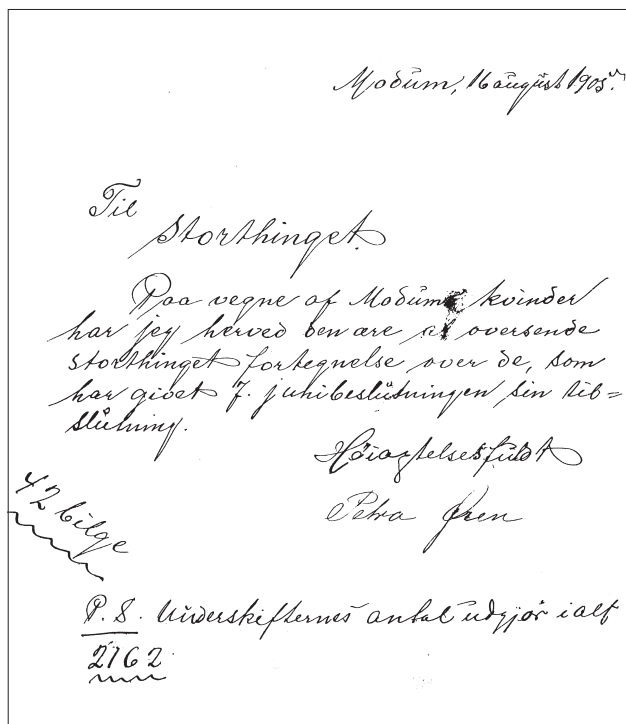 Modum, 16 august 1905.
Til
Storthinget.
Paa vegne af Modums kvinder
har jeg herved den ære at oversende
storthinget fortegnelse over de, som
har givet 7. junibeslutningen sin til=
slutning.
Høiagtelsesfuldt
Petra Øren
42 bilge
P.S. Underskifternes antal udgjør ialt
2762